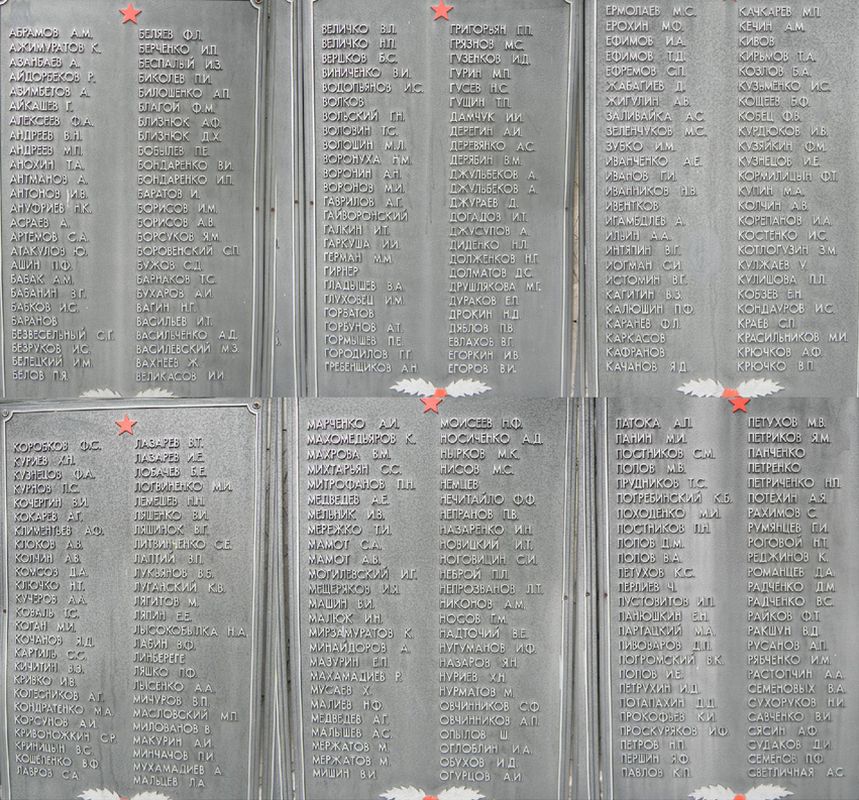 АБРАМОВ А.М.
АЖИМУРАТОВ К.
АЗАНБАЕВ А.
АЙДОРБЕКОВ Р.
АЗИМБЕТОВ А.
АЙКАШЕВ Г.
АЛЕКСЕЕВ Ф.А.
АНДРЕЕВ В.Н.
АНДРЕЕВ М.П.
АНОХИН Т.А.
АНТМАНОВ А.
АНТОНОВ И.В.
АНУФРИЕВ Н.К.
АСРАЕВ А.
АРТЕМОВ С.А.
АТАКУЛОВ Ю.
АШИН П.Ф.
БАБАК А.М.
БАБАНИН З.Г.
БАБКОВ И.С.
БАРАНОВ
БЕЗВЕСЕЛЬНЫЙ С.Г.
БЕЗРУКОВ И.С.
БЕЛЕЦКИЙ И.М.
БЕЛОВ П.Я.
БЕЛЯЕВ Ф.Л.
БЕРЧЕНКО И.П.
БЕСПАЛЫЙ И.З.
БИКОЛЕВ П.И.
БИЛОШЕНКО А.П.
БЛАГОЙ Ф.М.
БЛИЗНЮК А.Ф.
БЛИЗНЮК Д.Х.
БОБЫЛЕВ П.Е.
БОНДАРЕНКО В.И.
БОНДАРЕНКО И.П.
БАРАТОВ И.
БОРИСОВ И.М.
БОРИСОВ А.В.
БОРСУКОВ Я.М.
БОРОВЕНСКИЙ С.П.
БУЖОВ С.Д.
БАРНАКОВ Т.С.
БУХАРОВ А.И.
ВАГИН Н.Г.
ВАСИЛЬЕВ И.Т.
ВАСИЛЬЧЕНКО А.Д.
ВАСИЛЕВСКИЙ М.З.
ВАХНЕЕВ Ж.
ВЕЛИКАСОВ И.И.
ВЕЛИЧКО З.Л.
ВЕЛИЧКО Н.П.
ВЕРШКОВ Б.С.
ВИНИЧЕНКО В.И.
ВОДОПЬЯНОВ И.С.
ВОЛКОВ
ВОЛЬСКИЙ Г.Н.
ВОЛОВИН Т.С.
ВОЛОШИН М.Л.
ВОРОНУХА Н.М.
ВОРОНИН А.Н.
ВОРОНОВ М.И.
ГАВРИЛОВ А.Г.
ГАЙВОРОНСКИЙ
ГАЛКИН И.Т.
ГАРКУША И.И.
ГЕРМАН М.М.
ГИРНЕР
ГЛАДЫШЕВ В.А.
ГЛУХОВЕЦ И.М.
ГОРБАТОВ
ГОРБУНОВ А.Т.
ГОРМЫШЕВ П.Е.
ГОРОДИЛОВ Г.Г.
ГРЕБЕНЩИКОВ А.Н.
ГРИГОРЬЯН Г.П.
ГРЯЗНОВ М.С.
ГУЗЕНКОВ И.Д.
ГУРИН М.П.
ГУСЕВ Н.С.
ГУЩИН Т.П.
ДАМЧУК И.И.
ДЕРЕГИН А.И.
ДЕРЕВЯНКО А.С.
ДЕРЯБИН В.М.
ДЖУЛЬБЕКОВ А.
ДЖУЛЬБЕКОВ А.
ДЖУРАЕВ Д.
ДОГАДОВ И.Т.
ДЖУСУПОВ А.
ДИДЕНКО Н.Л.
ДОЛЖЕНКОВ Н.Г.
ДОЛМАТОВ Д.С.
ДРУШЛЯКОВА М.Г.
ДУРАКОВ Е.П.
ДРОКИН Н.Д.
ДЯБЛОВ П.В.
ЕВЛАХОВ В.Г.
ЕГОРКИН И.В.
ЕГОРОВ В.И.
ЕРМОЛАЕВ М.С.
ЕРОХИН М.Ф.
ЕФИМОВ И.А.
ЕФИМОВ Т.Д.
ЕФРЕМОВ С.П.
ЖАБАГИЕВ Д.
ЖИГУЛИН А.В.
ЗАЛИВАЙКА А.С.
ЗЕЛЕНЧУКОВ М.С.
ЗУБКО И.М.
ИВАНЧЕНКО А.Е.
ИВАНОВ Г.И.
ИВАННИКОВ Н.В.
ИВЕНТКОВ
ИГАМБДЛЕВ А.
ИЛЬИН А.А.
ИНТЯПИН В.Г.
ИОГМАН С.И.
ИСТОМИН В.Г.
КАГИТИН В.З.
КАЛЮШИН П.Ф.
КАРАНЕВ Ф.Л.
КАРКАСОВ
КАФРАНОВ
КАЧАНОВ Я.Д.
КАЧКАРЕВ М.П.
КЕЧИН А.М.
КИВОВ
КИРЬМОВ Т.А.
КОЗЛОВ Б.А.
КУЗЬМЕНКО И.С.
КОЩЕЕВ Б.Ф.
КОБЕЦ Ф.В.
КУРДЮКОВ И.В.
КУЗЯЙКИН Ф.М.
КУЗНЕЦОВ И.Е.
КОРМИЛИЦЫН Ф.Т.
КУПИН М.А.
КОЛЧИН А.В.
КОРЕПАНОВ И.А.
КОСТЕНКО И.С.
КОТЛОГУЗИН З.М.
КУЛЖАЕВ У.
КУЛИЦОВА П.Л.
КОБЗЕВ Е.Н.
КОНДАУРОВ И.С.
КРАЕВ С.П.
КРАСИЛЬНИКОВ М.И.
КРЮЧКОВ А.Ф.
КРЮЧКО В.П.
КОРОБКОВ Ф.С.
КУРИЕВ Х.Н.
КУЗНЕЦОВ Ф.А.
КУРНОВ П.С.
КОЧЕРГИН В.И.
КОКАРЕВ А.Г.
КЛИМЕНТЬЕВ А.Ф.
КТОКОВ А.В.
КОЛЧИН А.В.
КОМСОВ Д.А.
КЛЮЧКО Н.Т.
КУЧЕРОВ А.А.
КОВАЛЬ Т.С.
КОГАН М.И.
КОЧАНОВ Я.Д.
КАРТИЛЬ С.С.
КИЧИТИН В.З.
КРИВКО И.В.
КОЛЕСНИКОВ А.Г.
КОНДРАТЕНКО М.А.
КОРСУНОВ А.И.
КРИВОНОЖКИН С.Р.
КРИНИЦЫН В.С.
КОШЕЛЕНКО В.Ф.
ЛАВРОВ С.А.
ЛАЗАРЕВ В.Т.
ЛАЗАРЕВ И.Е.
ЛОБАЧЕВ Б.Е.
ЛОГВИНЕНКО М.И.
ЛЕМЕШЕВ Н.Н.
ЛЯШЕНКО В.И.
ЛЯШИНОК В.Г.
ЛИТВИНЕНКО С.Е.
ЛАПТИЙ В.П.
ЛУКВЯНОВ В.Б.
ЛУГАНСКИЙ К.В.
ЛЯГИТОВ М.
ЛЯПИН Е.Е.
ЛЫСОКОБЫЛКА Н.А.
ЛАБИН В.Ф.
ЛИНБЕРЕГЕ
ЛЯШКО П.Ф.
ЛЫСЕНКО А.А.
МИЧУРОВ В.П.
МАСЛОВСКИЙ М.П.
МИЛОВАНОВ В.
МАКУРИН А.И.
МИНЧАЧОВ П.И.
МУХАМАДИЕВ А.
МАЛЬЦЕВ Л.А.
МАРЧЕНКО А.И.
МАХОМЕДЬЯРОВ К.
МАХРОВА В.М.
МИХТАРЬЯН С.С.
МИТРОФАНОВ П.Н.
МЕДВЕДЕВ А.Е.
МЕЛЬНИК И.В.
МЕРЕЖКО Г.И.
МАМОТ С.А.
МАМОТ А.В.
МОГИЛЕВСКИЙ И.Г.
МЕЩЕРЯКОВ И.Я.
МАШИН В.И.
МАЛЮК И.Н.
МИРЗАМУРАТОВ К.
МИНАЙДОРОВ А.
МАЗУРИН Е.П.
МАХАМАДИЕВ Р.
МУСАЕВ Х.
МАЛИЕВ Н.Ф.
МЕДВЕДЕВ А.Г.
МАЛЫШЕВ А.С.
МЕРЖАТОВ М.
МЕРЖАТОВ М.
МИШИН В.И.
МОИСЕЕВ Н.Ф.
НОСИЧЕНКО А.Д.
НЫРКОВ М.К.
НИСОВ М.С.
НЕМЦЕВ
НЕЧИТАЙЛО Ф.Ф.
НЕПРАНОВ П.В.
НАЗАРЕНКО И.Н.
НОВИЦКИЙ И.Т.
НОГОВИЦИН С.И.
НЕБРОЙ П.Л.
НЕПРОЗВАНОВ Л.Т.
НИКОНОВ А.М.
НОСОВ Т.М.
НАДТОЧИЙ В.Е.
НУГУМАНОВ И.Ф.
НАЗАРОВ Я.Н.
НУРИЕВ Х.Н.
НУРМАТОВ М.
ОВЧИННИКОВ С.Ф.
ОВЧИННИКОВ А.П.
ОПЫЛОВ Ш.
ОГЛОБЛИН И.А.
ОБУХОВ И.Д.
ОГУРЦОВ А.И.
ПАТОКА А.П.
ПАНИН М.И.
ПОСТНИКОВ С.М.
ПОПОВ М.В.
ПРУДНИКОВ Т.С.
ПОГРЕБИНСКИЙ К.Б.
ПОХОДЕНКО М.И.
ПОСТНИКОВ П.Н.
ПОПОВ Д.М.
ПОПОВ В.А.
ПЕТУХОВ К.С.
ПЕРЛИЕВ Ч.
ПУСТОВИТОВ И.П.
ПАНЮШКИН Е.Н.
ПАРТАЦКИЙ М.А.
ПИВОВАРОВ Д.П.
ПОГРОМСКИЙ В.К.
ПОПОВ И.Е.
ПЕТРУХИН И.Д.
ПОТАПАХИН Д.Д.
ПРОКОФЬЕВ К.И.
ПРОСКУРЯКОВ И.Ф.
ПЕТРОВ Н.П.
ПЕРШИН Я.Ф.
ПАВЛОВ К.П.
ПЕТУХОВ М.В.
ПЕТРИКОВ Я.М.
ПАНЧЕНКО
ПЕТРЕНКО
ПЕТРИЧЕНКО Н.П.
ПОТЕХИН А.Я.
РАХИМОВ С.
РУМЯНЦЕВ Г.И.
РОГОВОЙ Н.Т.
РЕДЖИНОВ К.
РОМАНЦЕВ Д.А.
РАДЧЕНКО Д.М.
РАДЧЕНКО В.С.
РАЙКОВ Ф.Т.
РАКШУН В.Д.
РУСАНОВ А.П.
РЯБЧЕНКО И.М.
РАСТОПЧИН А.А.
СЕМЕНОВЫХ В.А.
СУХОРУКОВ Н.И.
САВЧЕНКО В.И.
СЯСИН А.Ф.
СУДАКОВ Д.И.
СЕМЕНОВ П.Ф.
СВЕТЛИЧНАЯ А.С.